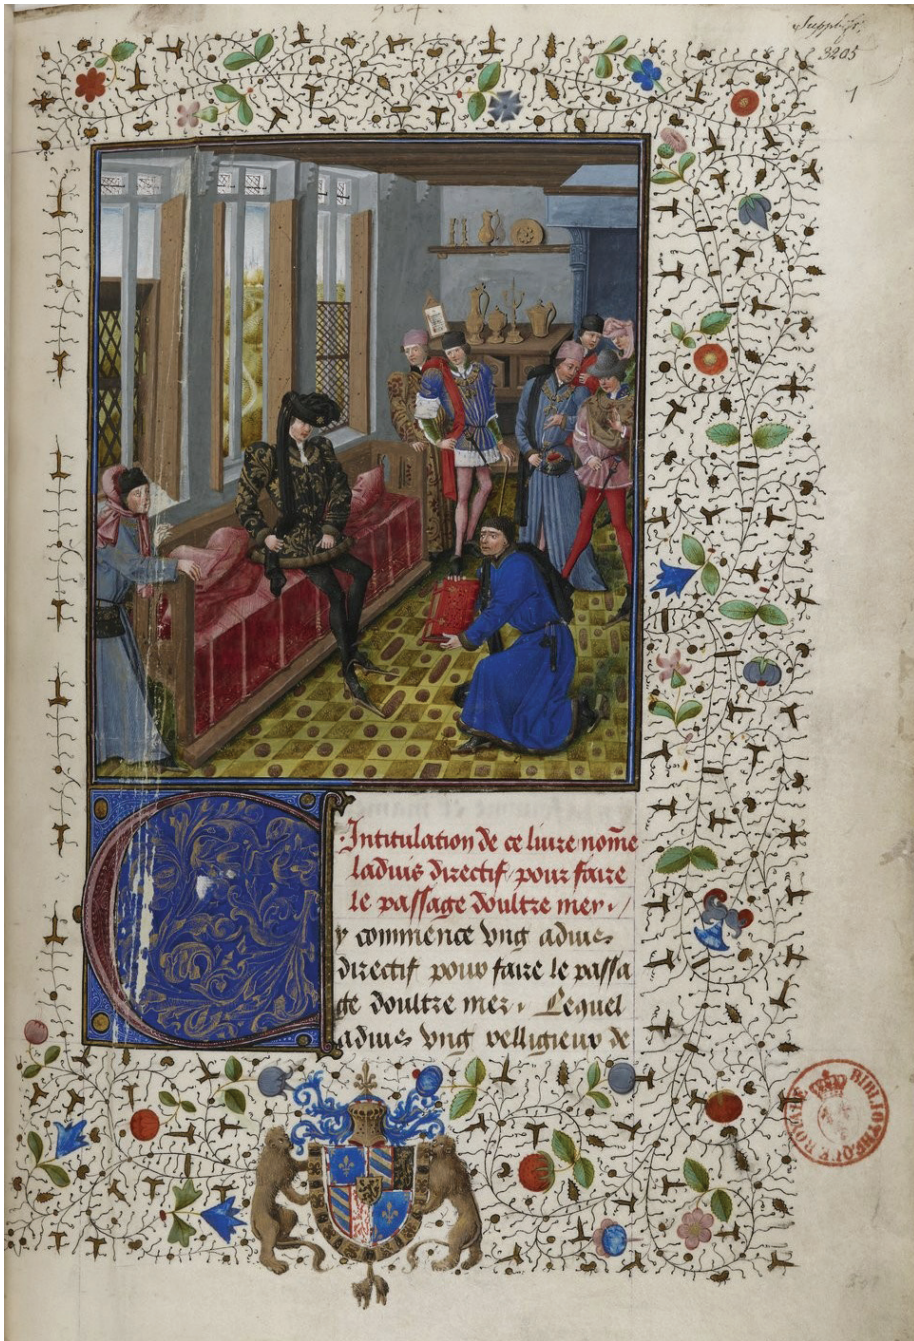 Suppl. fr.
3205
1
Intitulation de ce liure nōme
laduis directif pour faire
le passage doultre mer.
Cy commence vng aduis
directif pour faire le passa
ge doultre mer. Lequel
aduis vng relligieux de
BIBLIOTHEQUE ROYALE